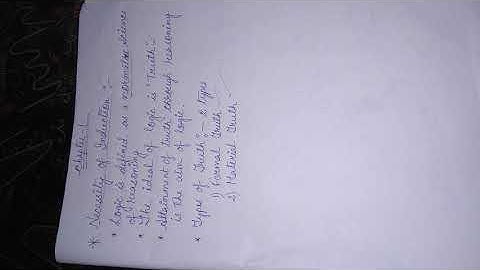 Chapter-1
* Necessity of Induction :-
* Logic is defined as a normative science
of reasoning.
* The ideal of logic is "Truth".
* Attainment of truth through reasoning
is the aim of logic.
* Types of Truth :- 2 types
1) Formal Truth
2) Material Truth